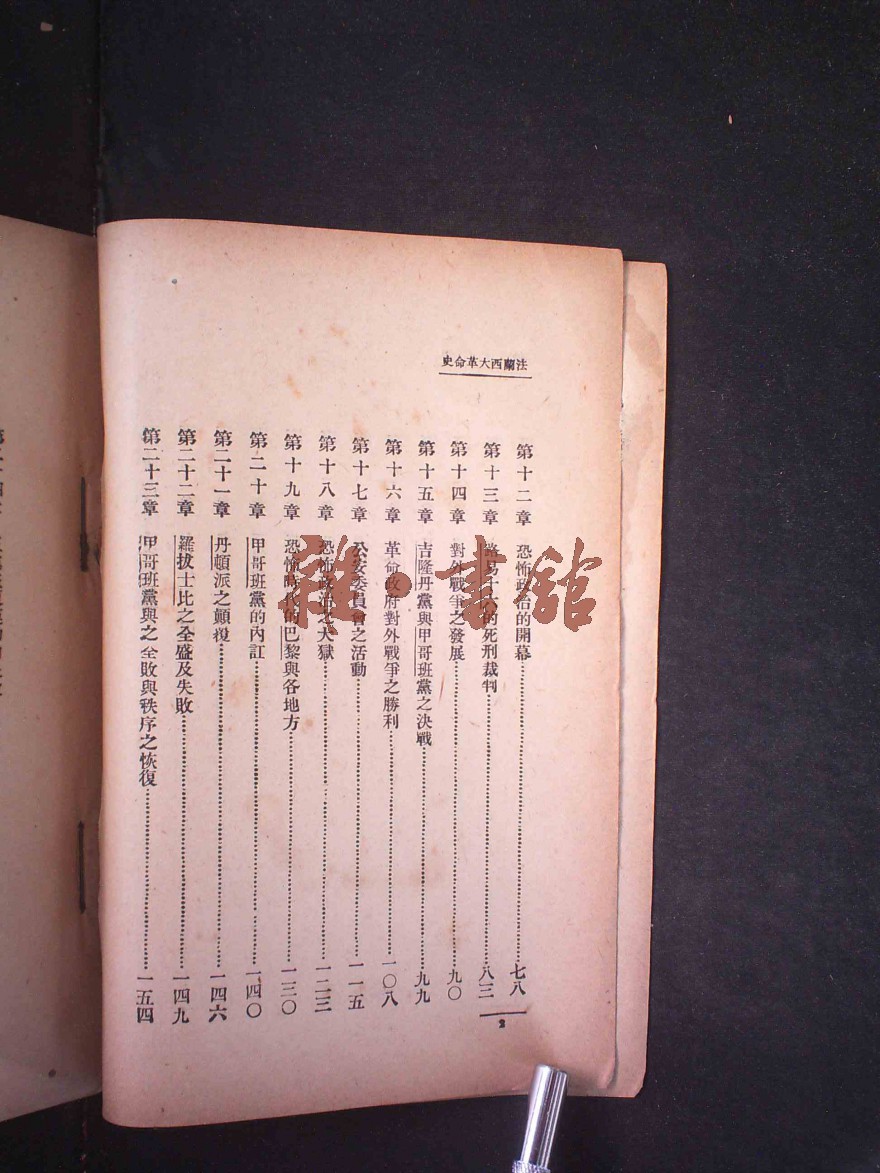 法蘭西大革命史
第十二章 恐怖政治的開幕……七八
第十三章 路易十六的死刑裁判……八三
第十四章 對外戰爭之發展……九〇
第十五章 吉隆丹黨與甲哥班黨之決戰……九九
第十六章 革命政府對外戰爭之勝利……一〇八
第十七章 公安委員會之活動……一一五
第十八章 恐怖政治之大獄……一二三
第十九章 恐怖時代的巴黎與各地方……一三〇
第二十章 甲哥班黨的內訌……一四〇
第二十一章 丹頓派之顛覆……一四六
第二十二章 羅拔士比之全盛及失敗……一四九
第二十三章 甲哥班黨與之全敗與秩序之恢復……一五四
2
雜·書館